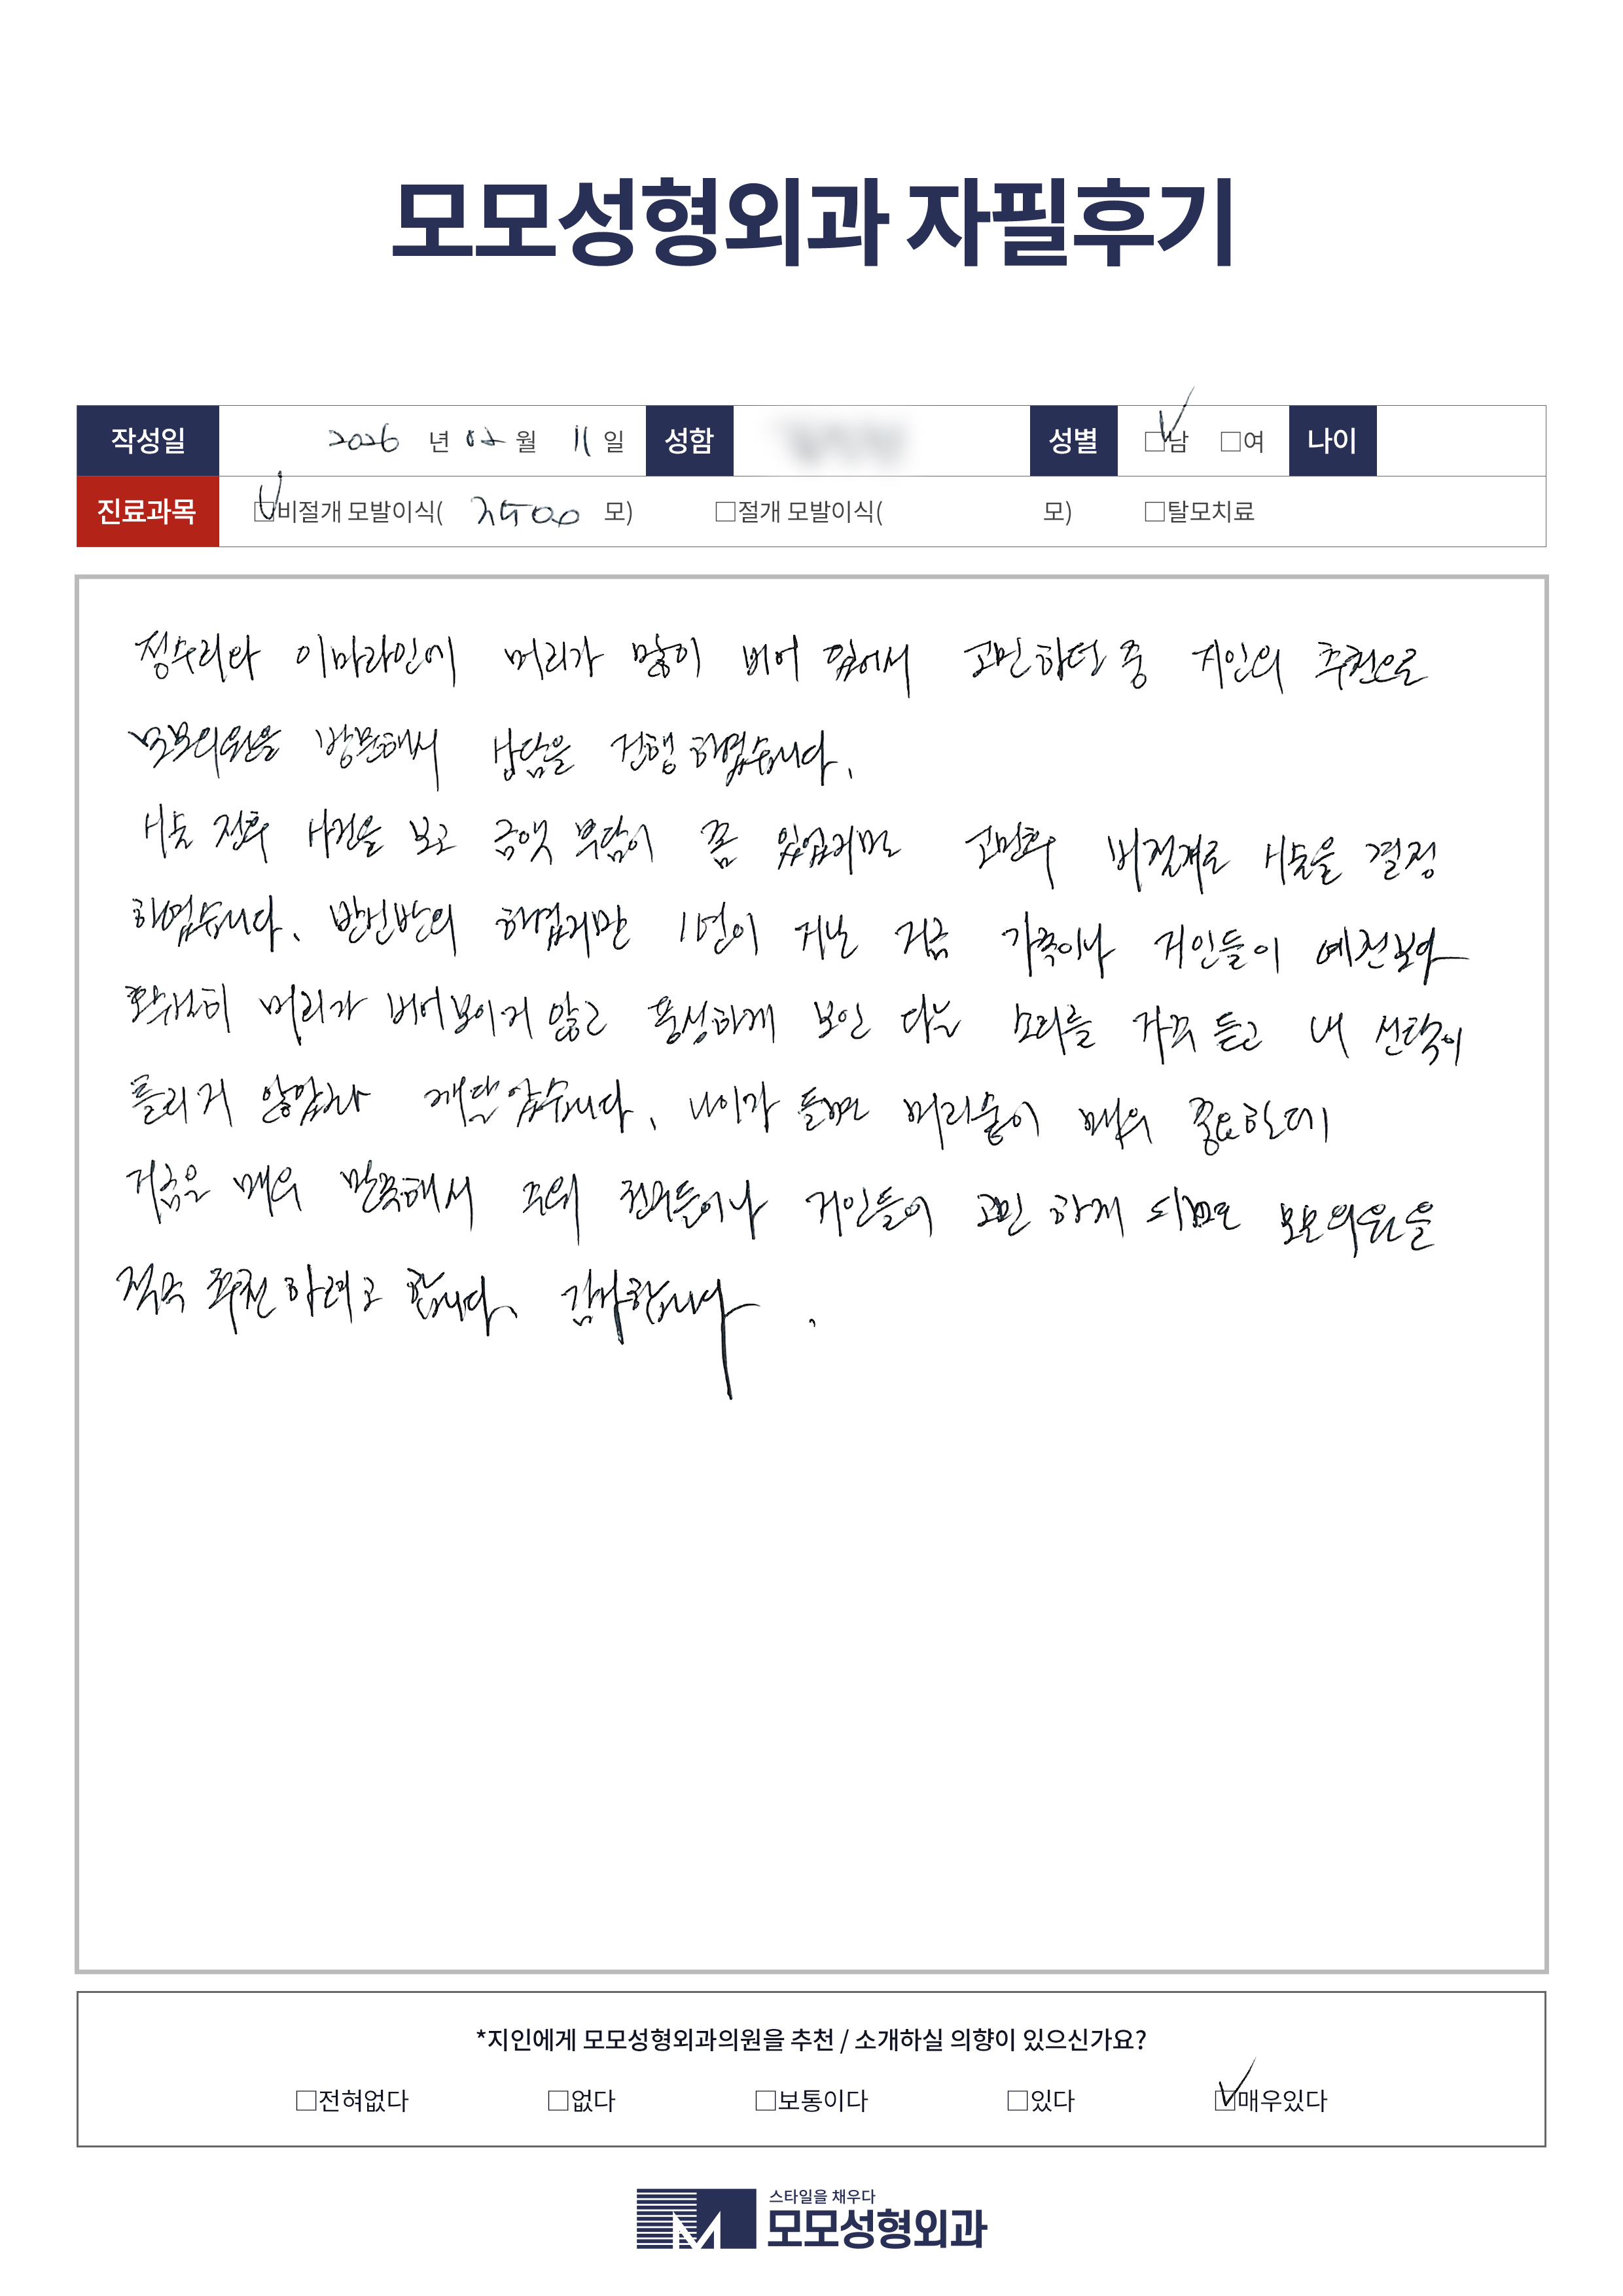 모모성형외과 자필후기
작성일 2026 년 02 월 11 일 성함 성별 □남 □여 나이
진료과목 □비절개 모발이식( 모) □절개 모발이식( 모) □탈모치료
정수리와 이마라인에 머리가 많이 비어 있어서 고민하던 중 지인의 추천으로
모모의원을 방문해서 상담을 진행 하였습니다.
시술 전후 사진을 보고 금액 부담이 쫌 있었지만 고민후 비절개로 시술을 결정
하였습니다. 반신반의 하였지만 1년이 지난 지금 가족이나 지인들이 예전보다
확실히 머리가 비어보이지 않고 풍성하게 보인 다는 소리를 자꾸 듣고 내 선택이
틀리지 않았구나 깨달았습니다. 나이가 들면 머리숱이 매우 중요한데
지금은 매우 만족해서 주위 친구들이나 지인들이 고민 하게 되면 모모의원을
적극 추천 하려고 합니다. 감사합니다.
*지인에게 모모성형외과의원을 추천 / 소개하실 의향이 있으신가요?
□전혀없다 □없다 □보통이다 □있다 □매우있다
스타일을 채우다
모모성형외과